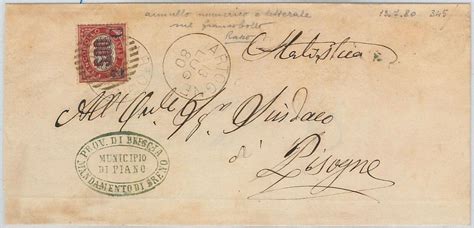 annullo numerico e letterale
sul francobollo
Raro
13.7.80 345
Statistica
All' Ill. Sig. Sindaco
di
Pisogne
PROV. DI BRESCIA
MUNICIPIO
DI PIANO
MANDAMENTO DI BRENO